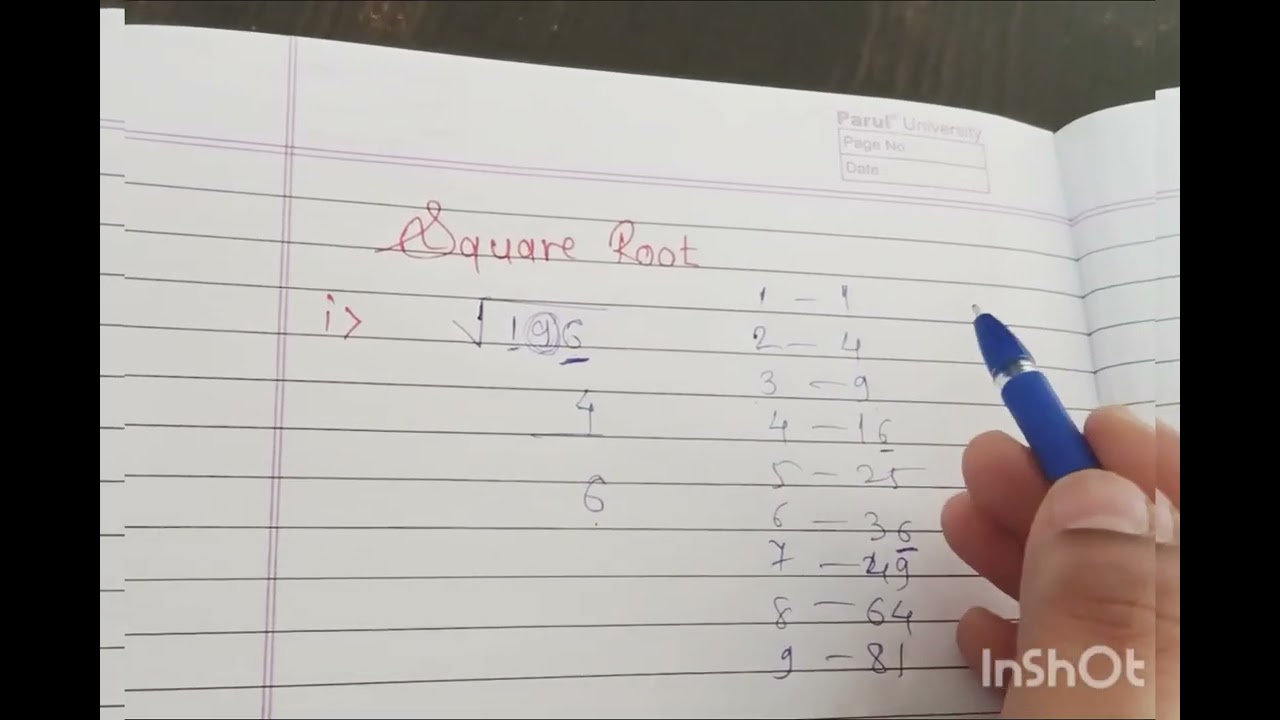 Parul University
Page No
Date
Square Root
i> √196
4
6
1 – 1
2 – 4
3 – 9
4 – 16
5 – 25
6 – 36
7 – 49
8 – 64
9 – 81
InShOt